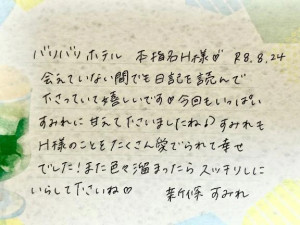 バリバリホテル 本指名H様♡ R8.8.24
会えていない間でも日記を読んで
下さっていて嬉しいです♡今回もいっぱい
すみれに甘えて下さいましたね♪すみれも
H様のことをたくさん愛でられて幸せ
でした！また色々溜まったらスッキリしに
いらして下さいね♡
新條 すみれ